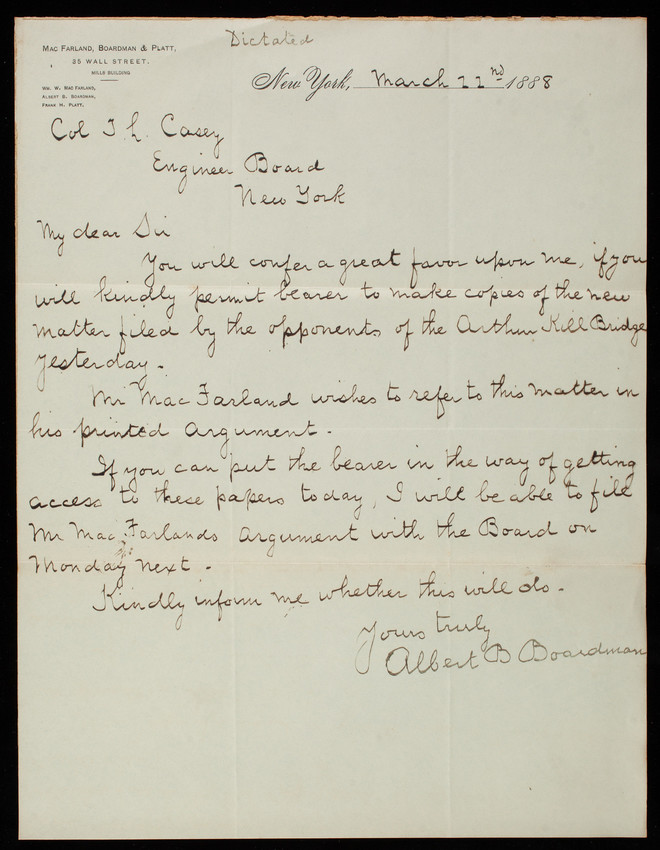 Mac Farland, Boardman & Platt,
35 Wall Street.
Mills Building
Wm. W. Mac Farland,
Albert B. Boardman,
Frank H. Platt,
Dictated
New York, March 22nd 1888
Col T. L. Casey
Engineer Board
New York
My dear Sir
You will confer a great favor upon me, if you
will kindly permit bearer to make copies of the new
matter filed by the opponents of the Arthur Kill Bridge
yesterday.
Mr MacFarland wishes to refer to this matter in
his printed argument.
If you can put the bearer in the way of getting
access to these papers today, I will be able to file
Mr Mac Farlands argument with the Board on
Monday next.
Kindly inform me whether this will do.
Yours truly
Albert B Boardman